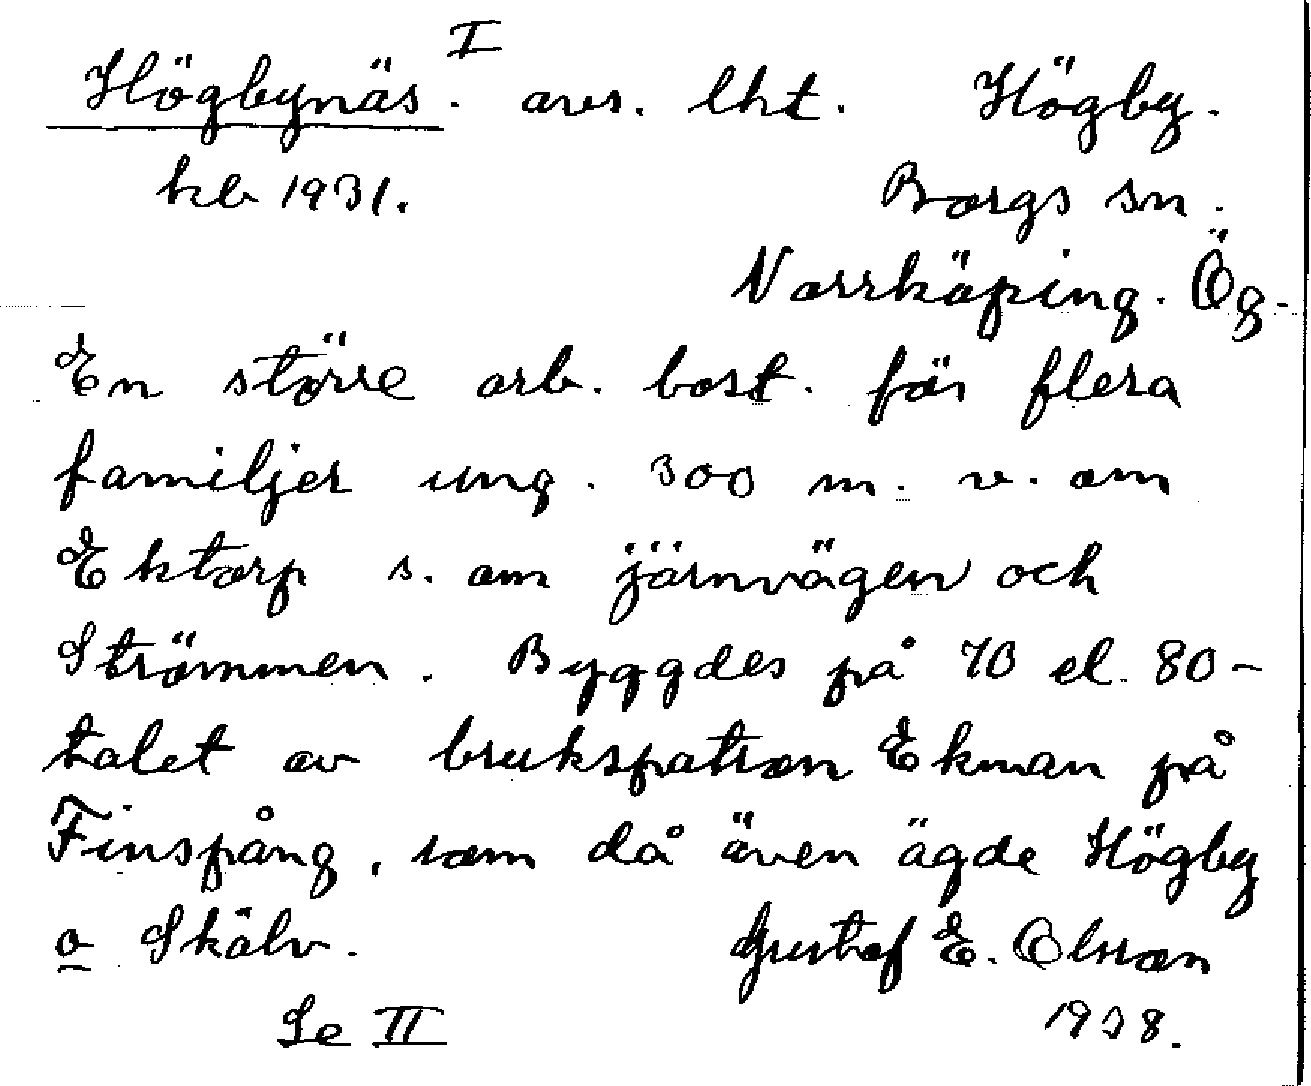 Högbynäs. I avs. lht. Högby.
kb 1931. Borgs sn.
Norrköping. Ög.
En större arb. bost. för flera
familjer ung. 300 m. v. om
Ektorp s. om järnvägen och
Strömmen. Byggdes på 70 el. 80-
talet av brukspatron Ekman på
Finspång, som då även ägde Högby
o Skälv. Gustaf E. Olsson
Se II 1938.